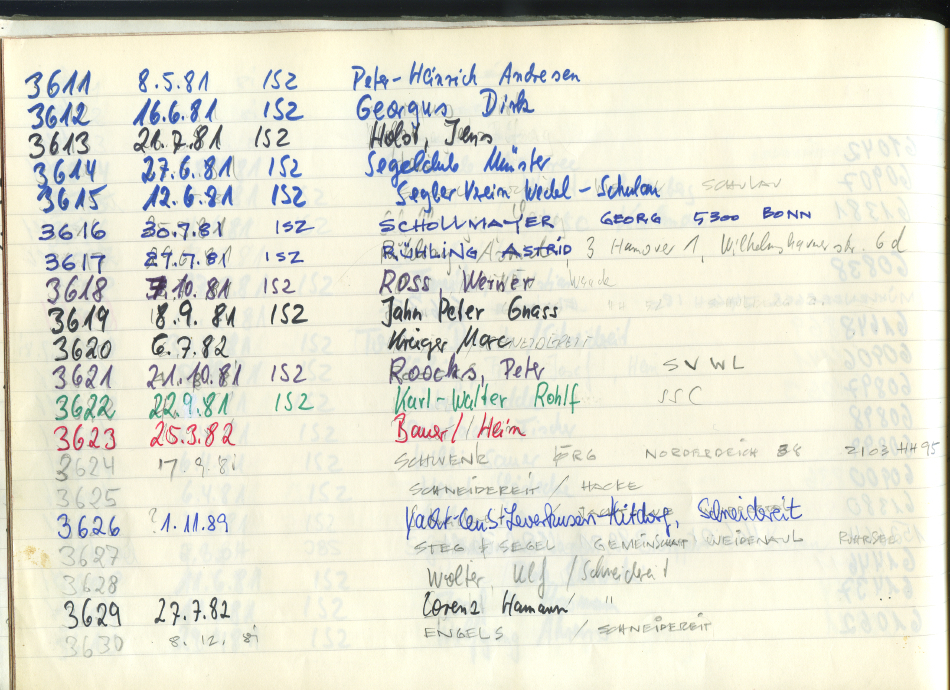 3611 8.5.81 ISZ Peter-Heinrich Andresen
3612 16.6.81 ISZ Georgus Dirk
3613 21.7.81 ISZ Holst, Jens
3614 27.6.81 ISZ Segelclub Münster
3615 12.6.81 ISZ Segler-Verein Wedel-Schulau SCHULAU
3616 30.7.81 ISZ SCHÖLLMAYER GEORG 5300 BONN
3617 29.7.81 ISZ RÜHLING ASTRID 3 Hanover 1, Wilhelmshavenerstr. 6d
3618 7.10.81 ISZ ROSS Werner
3619 8.9.81 ISZ Jahn Peter Gnass
3620 6.7.82 Krüger Marc
3621 21.10.81 ISZ Roocks, Peter SVWL
3622 22.9.81 ISZ Karl-Walter Rohlf SSC
3623 25.3.82 Bauer/Hein
3624 17.9.81 SCHWENR NORDERDEICH 2103 HH 95
3625 SCHNEIDEREIT / HACKE
3626 ?1.11.89 Yacht-Club-Leverkusen-Hitdorf, Schneidereit
3627 STEG & SEGEL GEMEINSCHAFT WEIDENAU RUHRSEE
3628 Wolter, Ulf / Schneidereit
3629 27.7.82 Lorenz Hamann "
3630 8.12.81 ENGELS / SCHNEIDEREIT